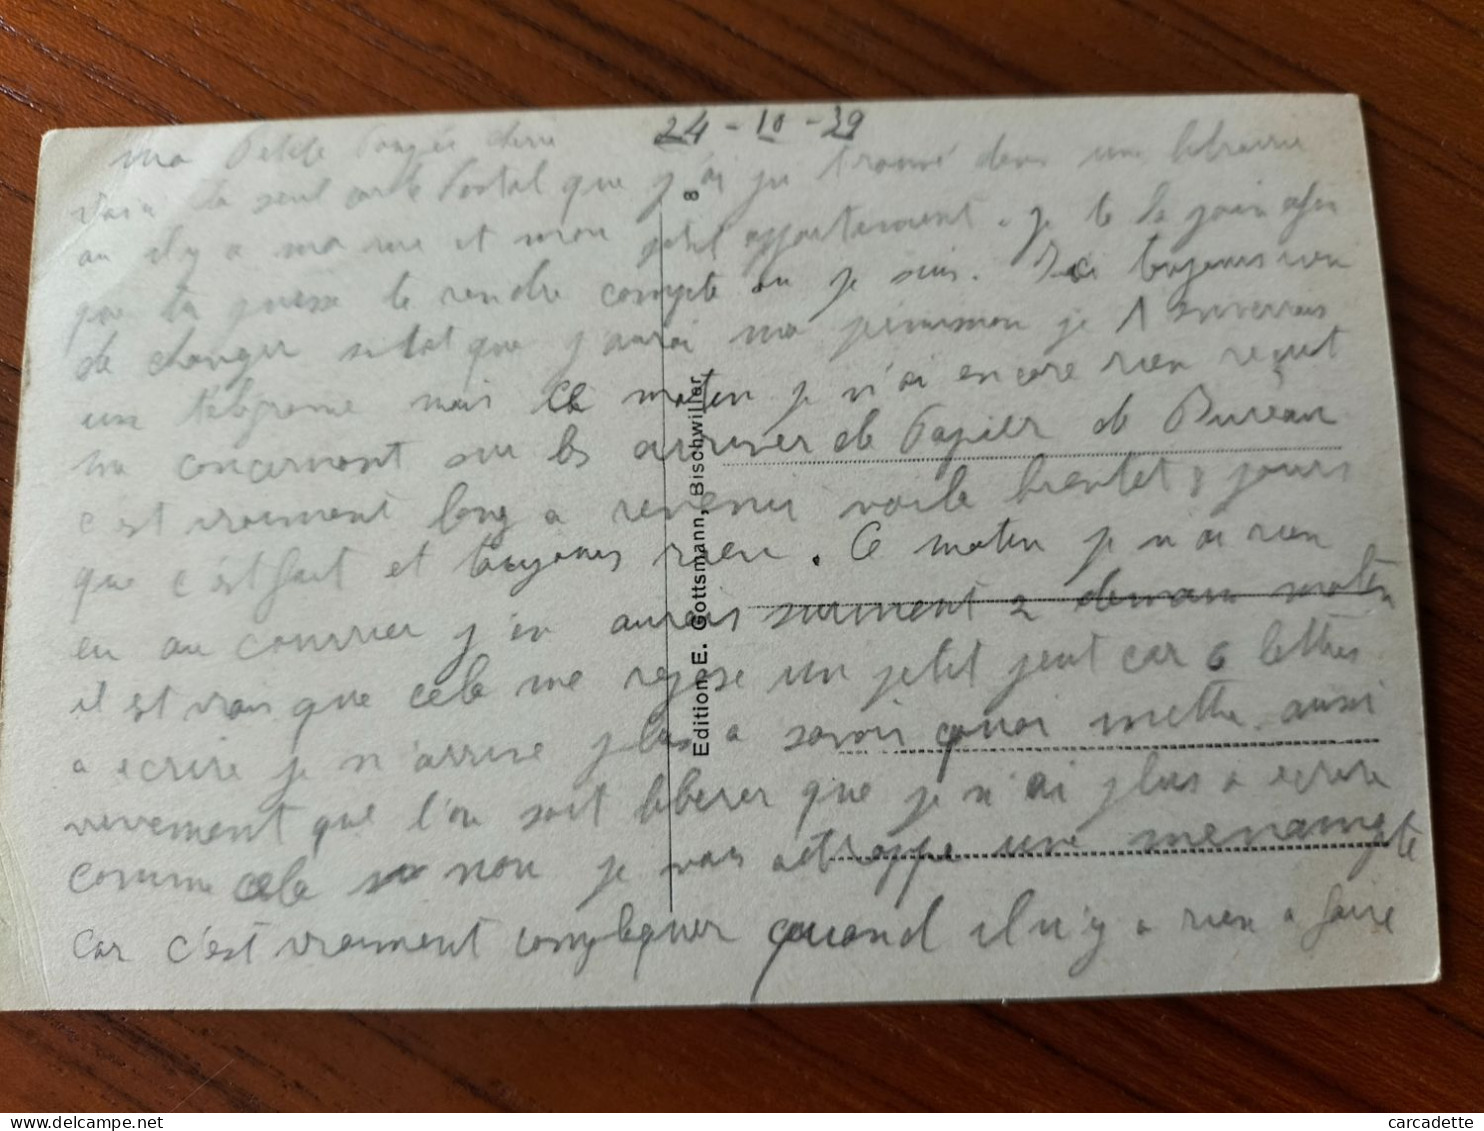 24-10-39
Ma Petite Poupée cheri
Voici la seul carte Postal que j'ai pu trouvé dans une librairie
ou il y a ma rue et mon petit appartement. je te la join afin
que tu puisse te rendre compte ou je suis. Ici toujours rien
de changer sitot que j'aurai ma permission je t'enverrais
un telegrame mais ce matin je n'ai encore rien reçut
concernant sur les arriver de Papier de Bureau
c'est vraiment long a revenir voila bientet 8 jours
que c'est fait et toujours rien. Ce matin je n'ai rien
eu au courrier j'en aurais surment 2 demain matin
il est vrai que cela me repose un petit peut car 6 lettres
a ecrire je n'arrive plus a savoir quoi mettre aussi
vivement que l'on soit liberer que je n'ai plus a ecrire
comme cela si non je vais attrappe une meningite
Car c'est vraiment compliquer quand il n'y a rien a faire
Edition E. Gottsmann, Bischwiller 8
carcadette